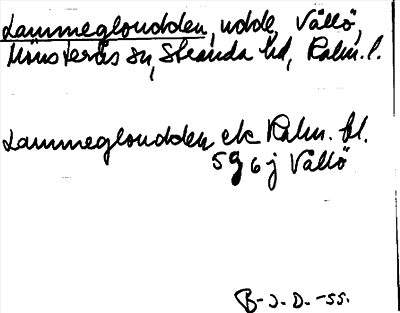 Lammegloudden, udde, Vållö,
Mönsterås sn, Stranda hd, Kalm. l.
Lammegloudden ek Kalm. bl.
5g 6j Vållö
B-J.D. -55.